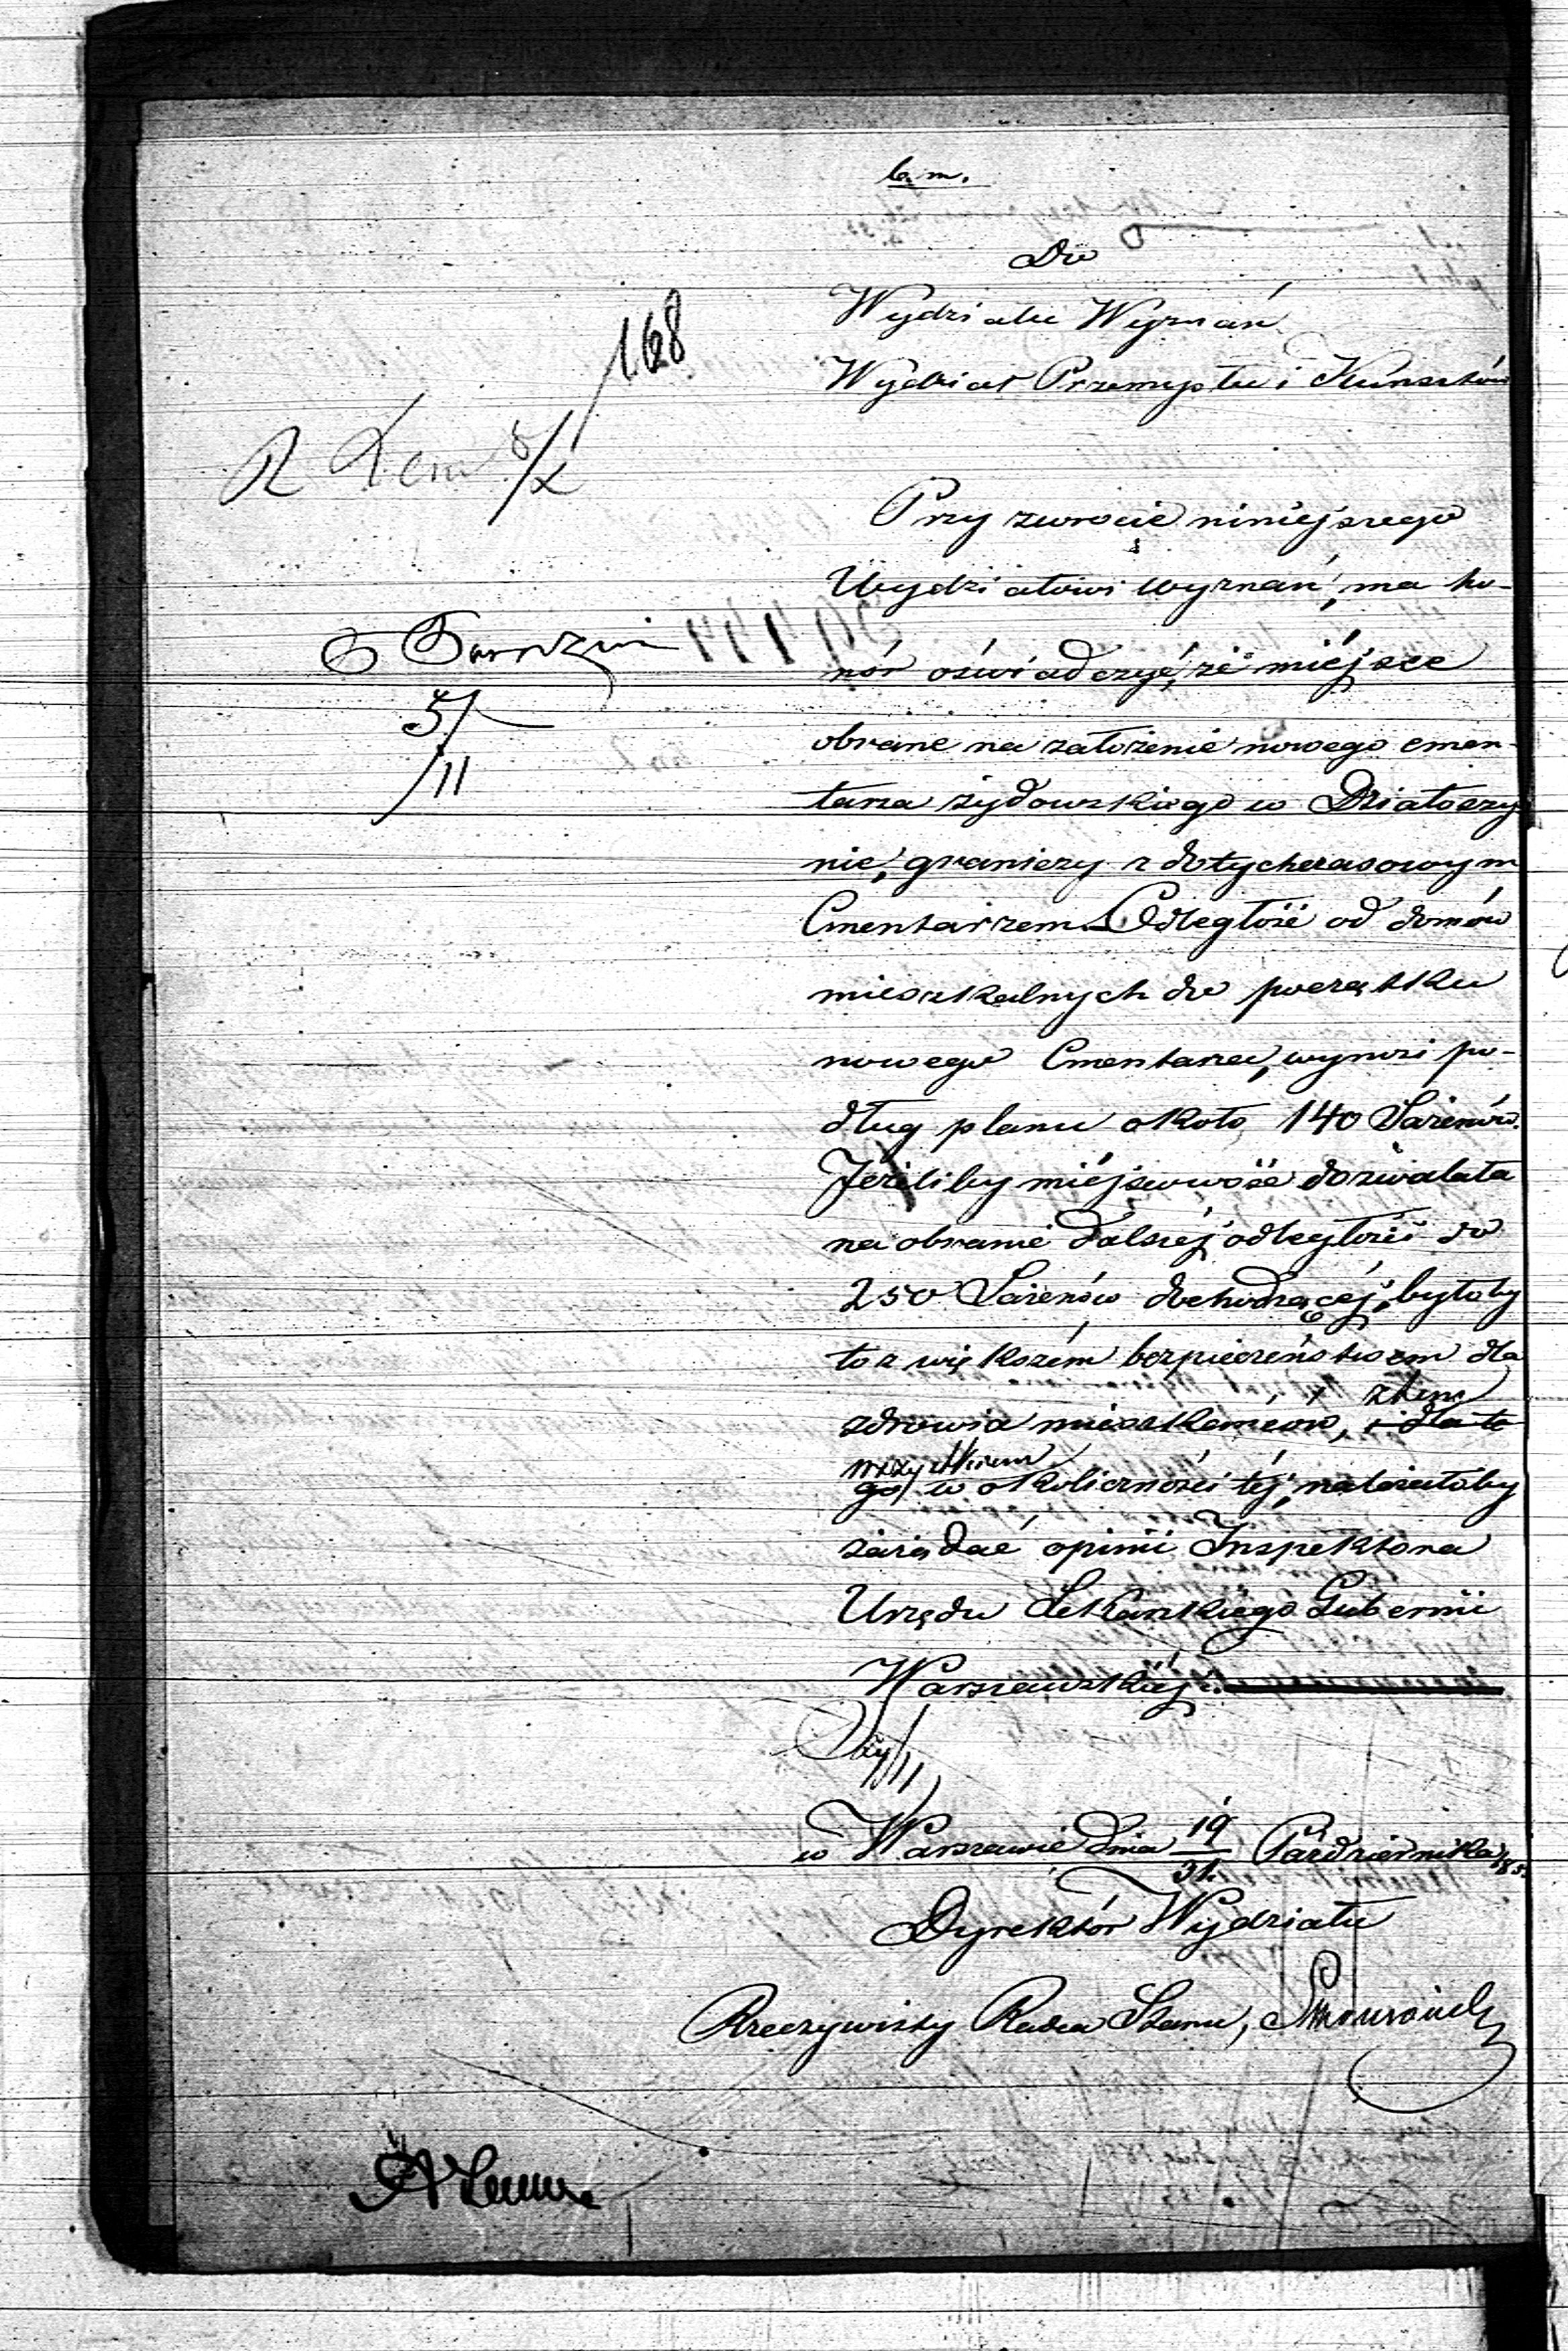 b. m.
Do
Wydziału Wyznań
Wydział Przemysłu i Kunsztów
168
Przy zwrocie niniejszego
Wydziałowi Wyznań, ma ho-
nór oświadczyć, że miéjsce
5/11
obrane na założenie nowego cmen-
tarza żydowskiego w Działoszy
nie, graniczy z dotychczasowym
Cmentarzem. Odległość od domów
mieszkalnych do początku
nowego Cmentarza, wynosi po-
dług planu około 140 Sażenów.
Jeżeliby miéjscowość dozwalała
na obranie dalszéj odległości do
250 Sażenów dochodzącéj, byłoby
to z większém bezpieczeństwem dla
zdrowia mieszkańców, i dla te
z tem
wszystkiem
go w okoliczności téj, należałoby
zażądać opinii Inspektora
Urzędu Lekarskiego Gubernii
Warszawskiéj.
w Warszawie dnia 19/31 Października 185
Dyrektór Wydziału
Rzeczywisty Radca Stanu,